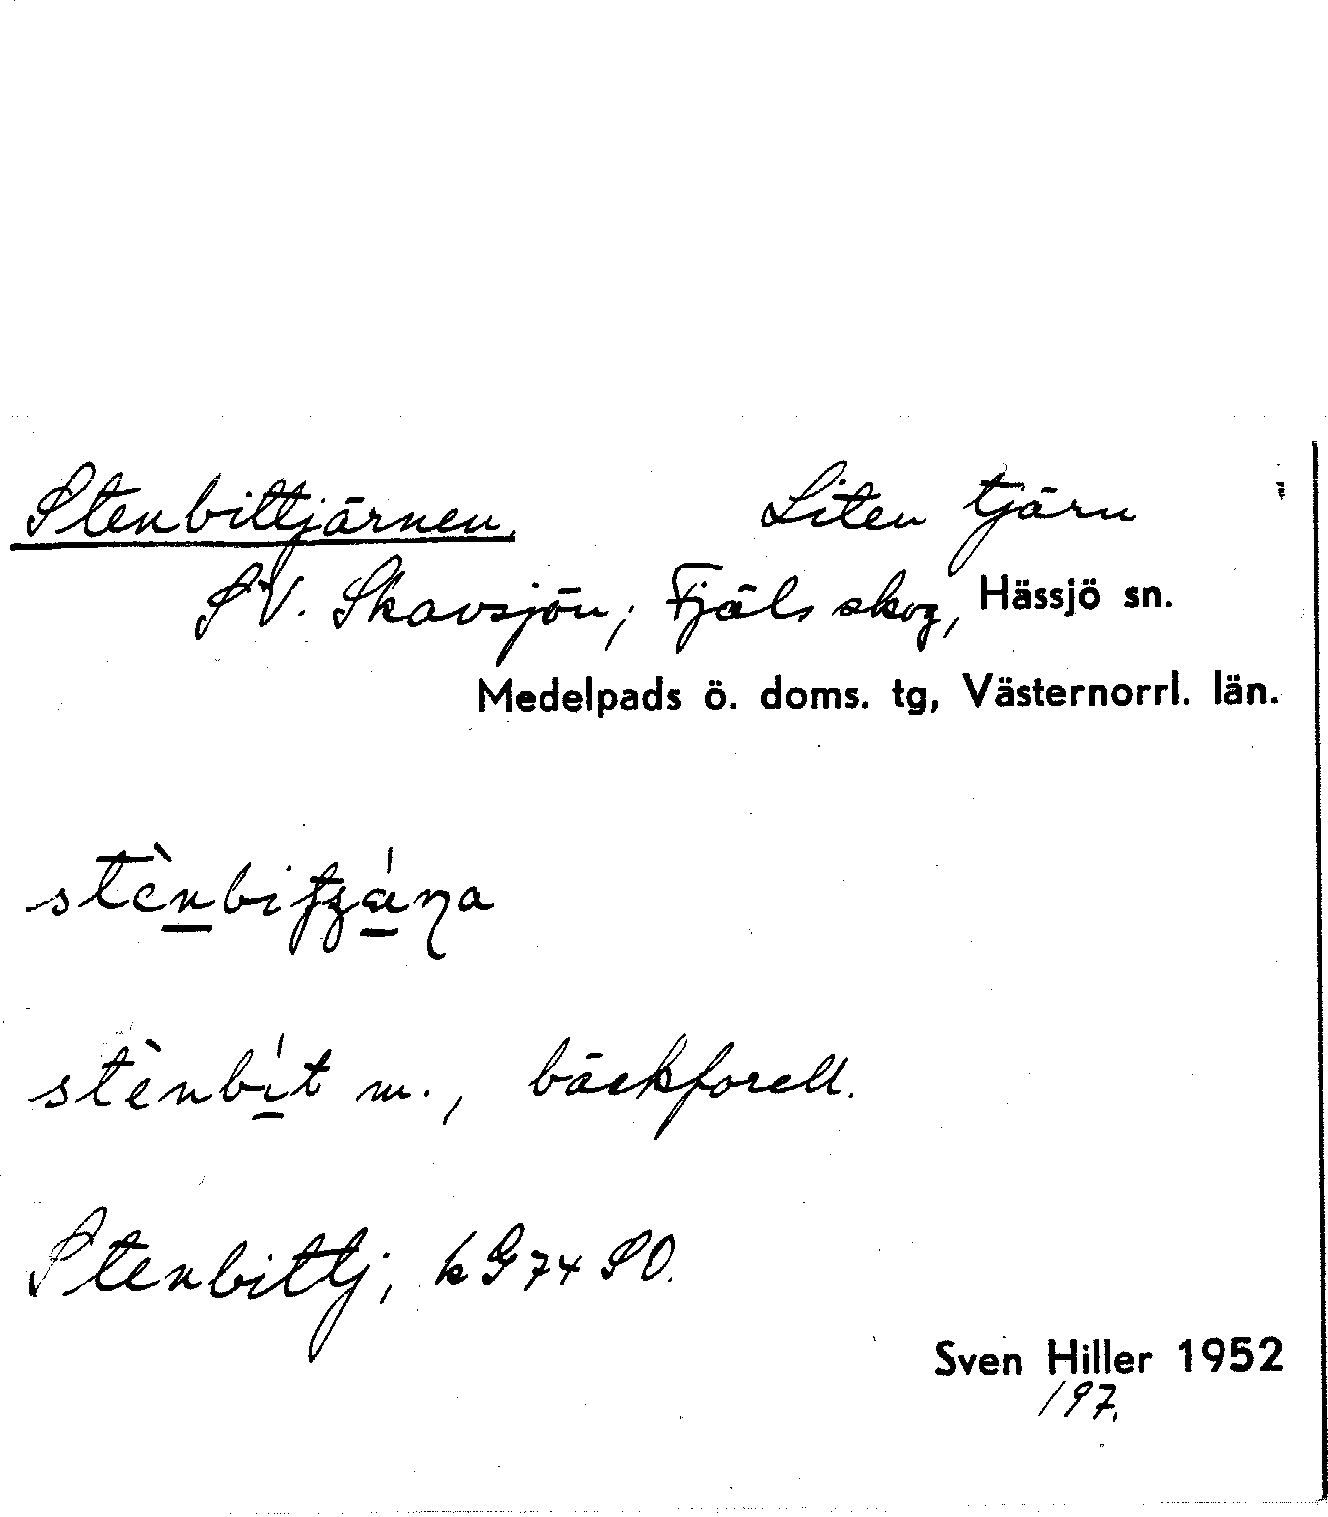 Stenbittjärnen. Liten tjärn
SV. Skavsjön, Fjäls skog, Hässjö sn.
Medelpads ö. doms. tg, Västernorrl. län.
stènbít m., bäckforell.
Stenbittj, kG74 SO.
Sven Hiller 1952
197.